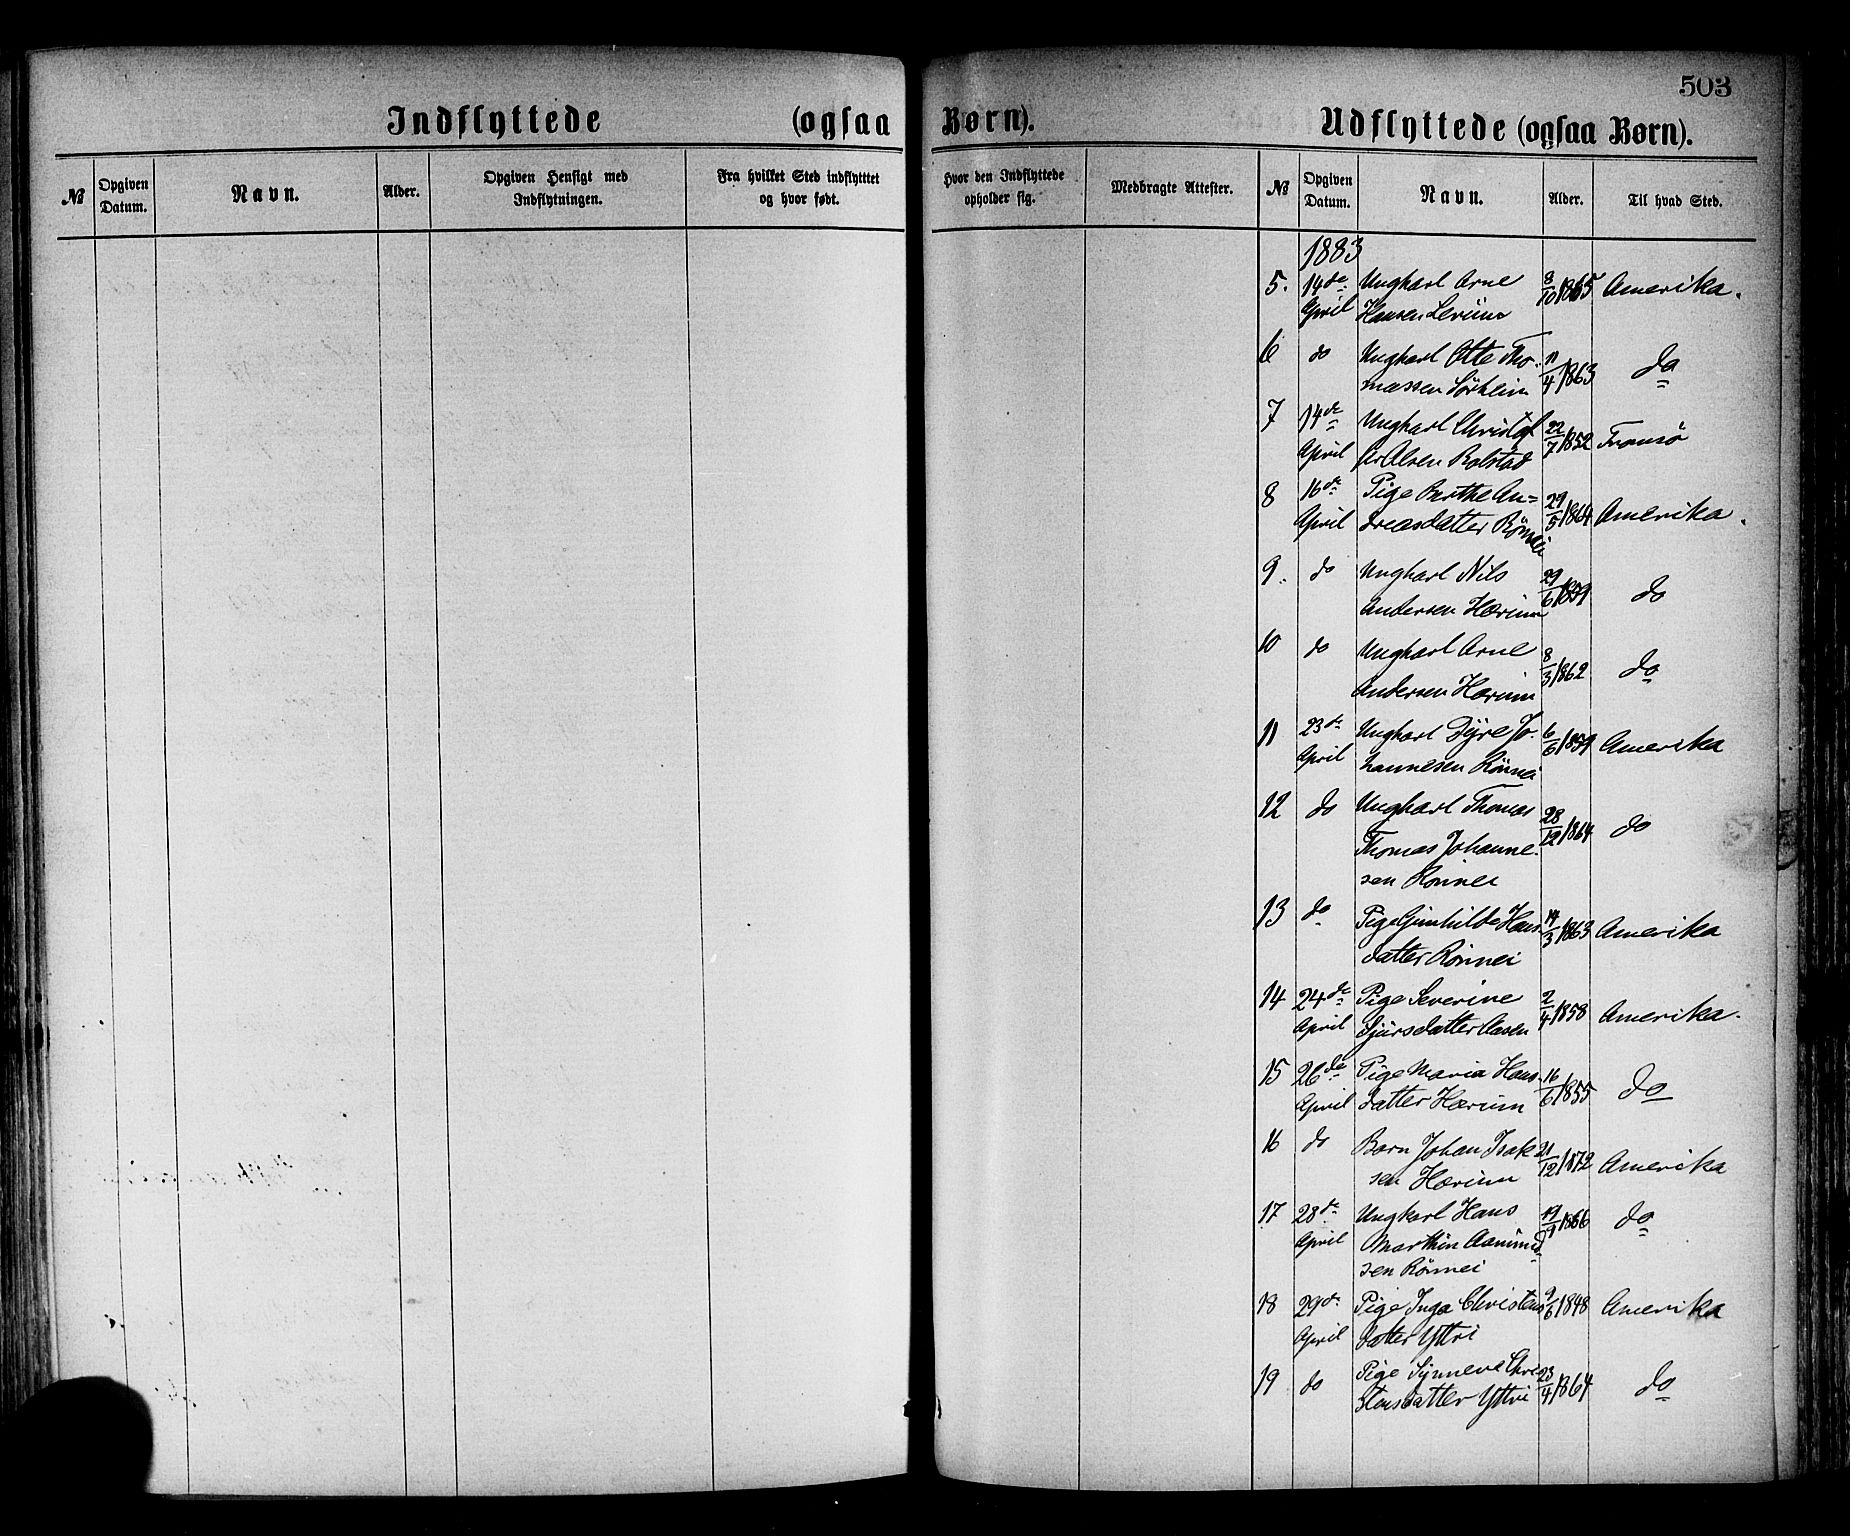 503
Indflyttede (ogsaa Børn).
Udflyttede (ogsaa Børn).
№ Opgiven Datum. Navn. Alder. Opgiven Hensigt med Indflytningen. Fra hvilket Sted indflytttet og hvor født. Hvor den Indflyttede opholder sig. Medbragte Attester. № Opgiven Datum. Navn. Alder. Til hvad Sted.
1883
5. 14de Ungkarl Arne 8/10 1865 Amerika.
April Hansen Lerum
6 do Ungkarl Otte Tho- 11/4 1863 do
massen Sørheim
7 14de Ungkarl Christof 22/7 1852 Tromsø
April fer Olsen Bolstad
8 16de Pige Berthe An= 29/5 1864 Amerika.
April dreasdatter Rönnei
9. do Ungkarl Nils 29/6 1859 do
Andersen Hærum
10 do Ungkarl Arne 8/3 1862 do
Andersen Hærum
11 23de Ungkarl Dyre Jo- 6/6 1859 Amerika
April hannesen Rönnei
12 do Ungkarl Thomas 28/12 1864 do
Thomas Johanne-
sen Rönnei
13 do Pige Gunhilde Hans 14/3 1863 Amerika
datter Rönnei
14 24de Pige Severine 2/4 1858 Amerika.
April Sjursdatter Aasen
15 26de Pige Maria Hans- 16/6 1855 do
April datter Hærum
16 do Barn Johan Isak 21/12 1872 Amerika
sen Hærum
17 28de Ungkarl Hans 19/9 1866 do
April Marthin Aamund-
sen Rönnei
18 29de Pige Inga Christens 9/6 1848 Amerika
April datter Yttri
19 do Pige Synneve Chri 23/4 1864 do
stensdatter Yttri